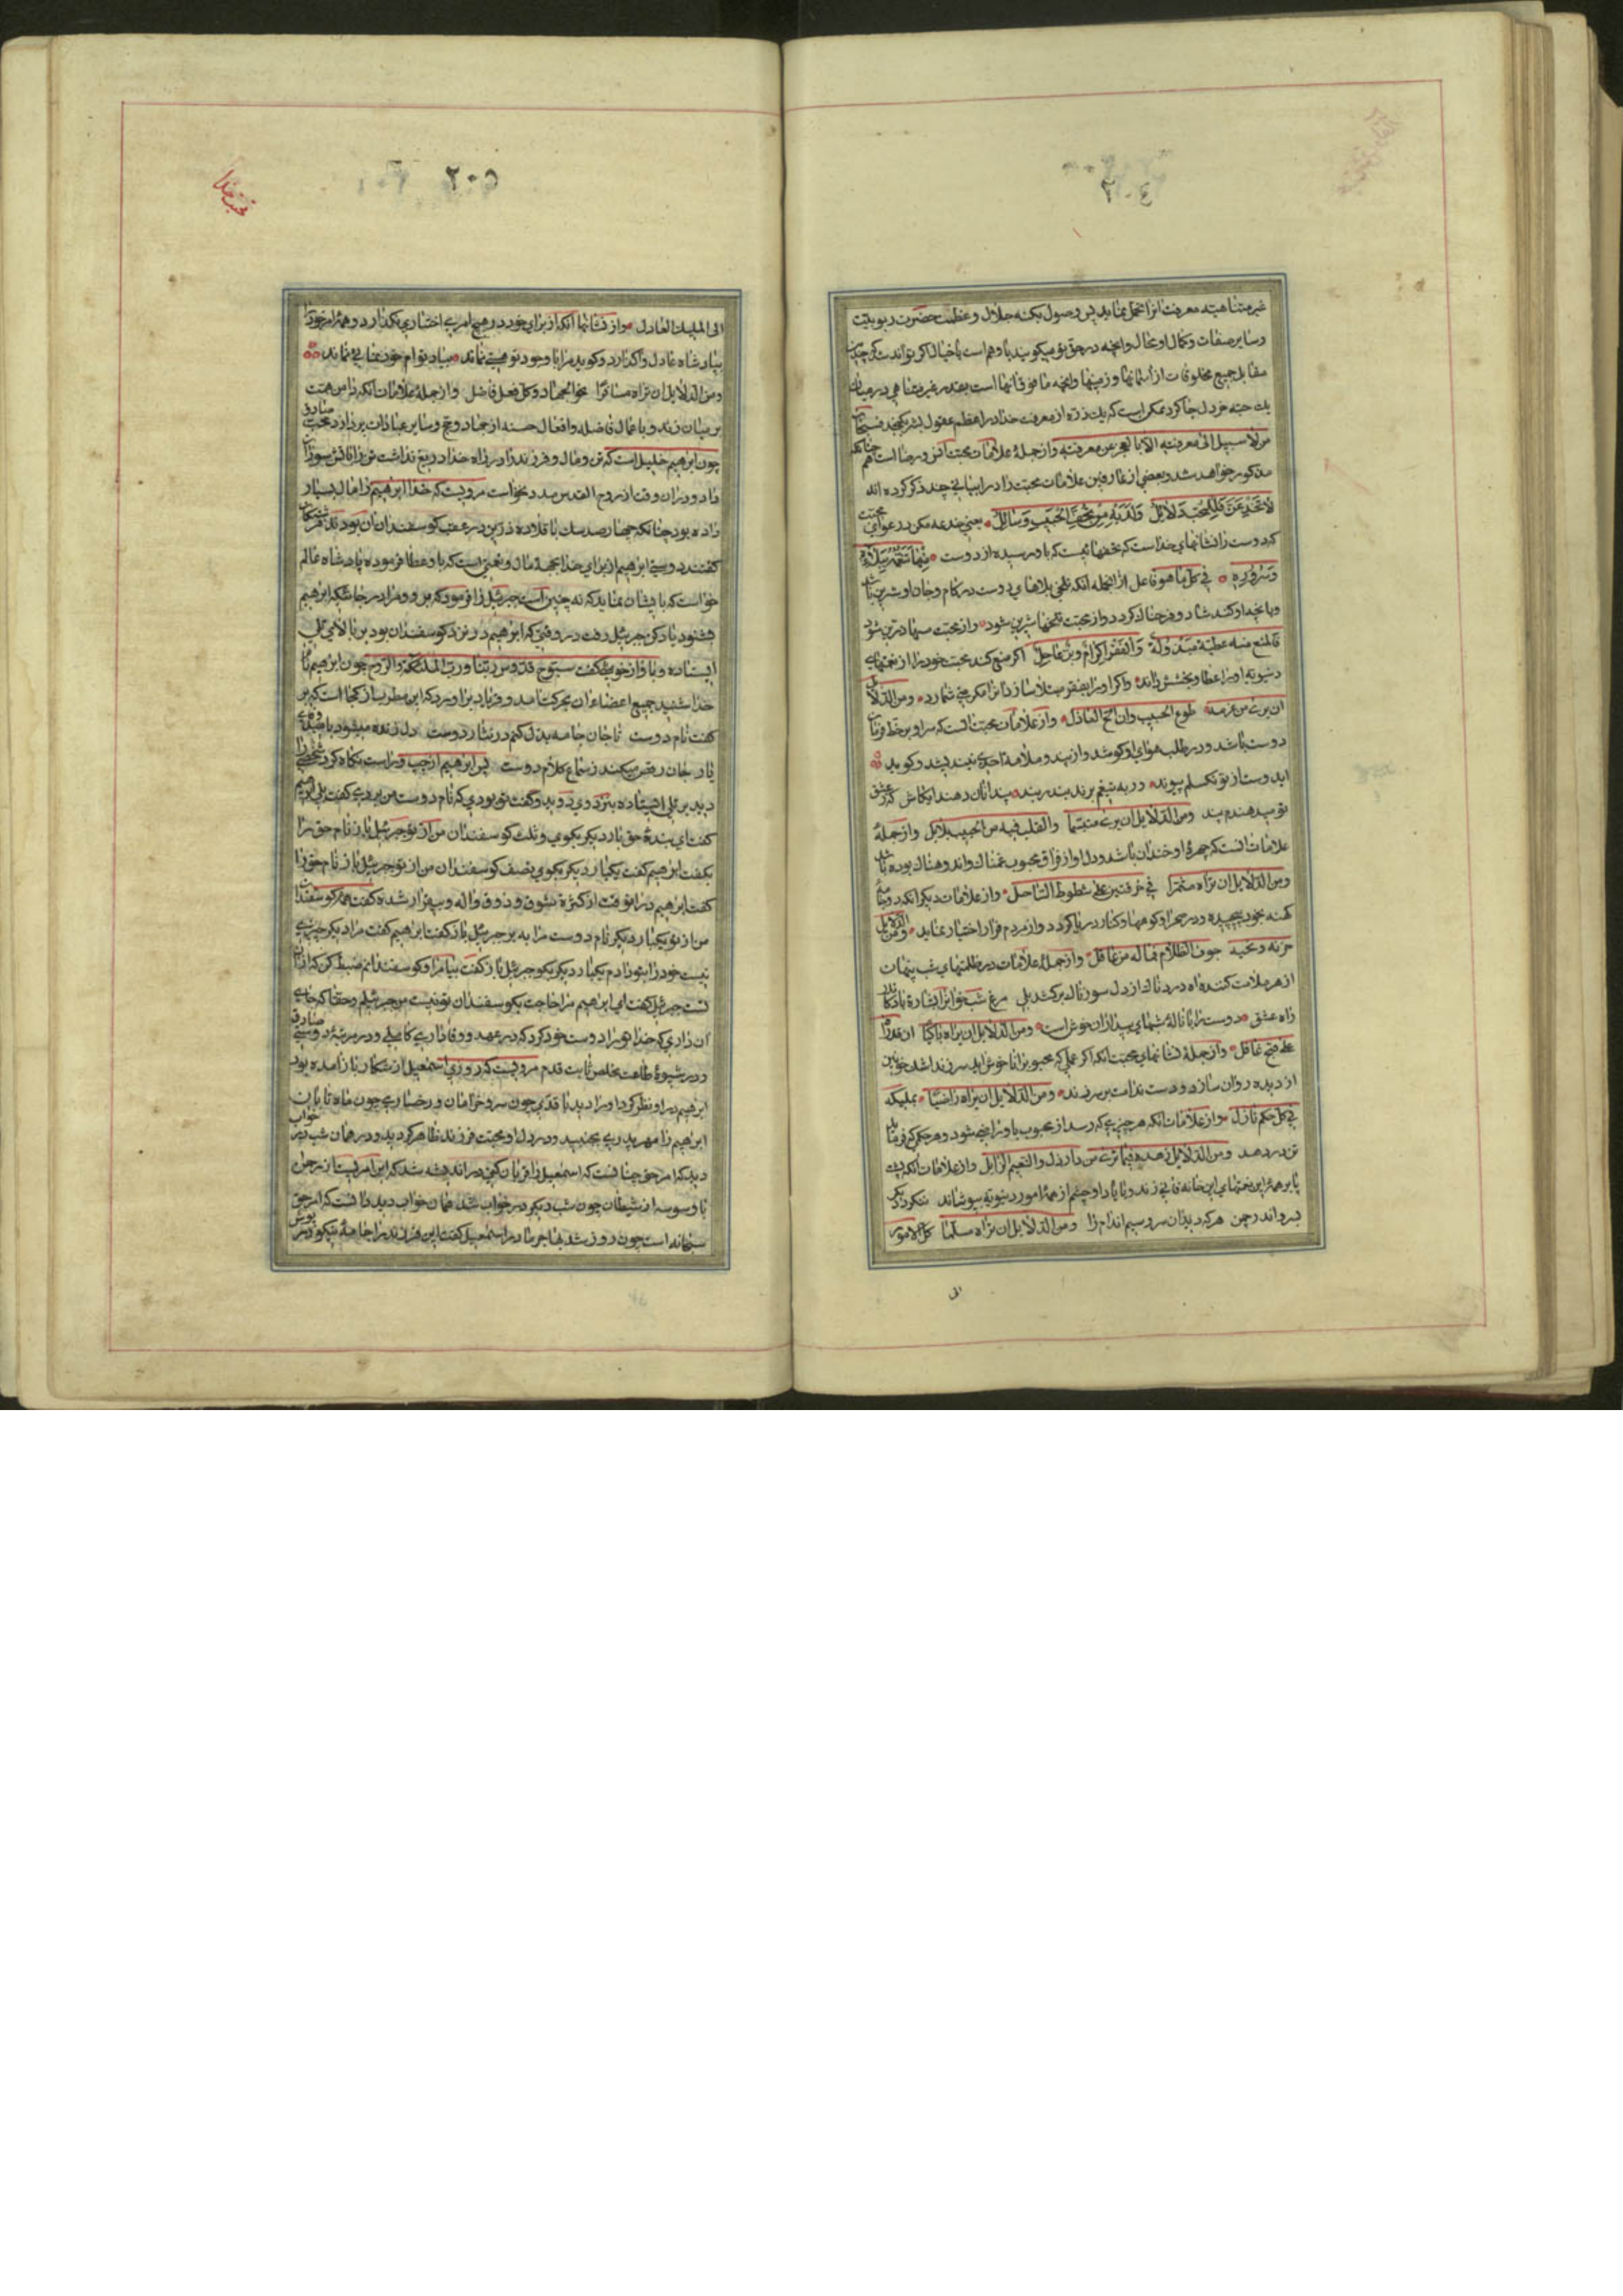 ٢٠٤
غیر متناهیه معرفت انرا تحمل نماید پس وصول بکنه جلال و عظمت حضرت ربوبیت
وسایر صفات و کمال او محال وانچه در حق او میکویند یا وهم است یا خیال اکر تواند
مقابل جمیع مخلوقات از آسمانها و زمینها وانچه مافوق انها است بقدر غیر متناهی در میان
یك حبه خردل جا کرد ممکن است که یك ذره از معرفت خدا در اعظم عقول بشر بکنجد فسبحان
من لا سبیل الی معرفته الا بالعجز عن معرفته وازجملهٔ علامات محبت انس و رضا است چنانکه
مذکور خواهد شد و بعضی از عارفین علامات محبت را در ابیاتی چند ذکر کرده اند
لا تخدعن فللمحب دلایل ولدیه من تحف الحبیب وسائل یعنی خدعه مکن در دعوای محبت
که دوست را نشانهای خدا است که تحفهائیست که باو رسیده از دوست منها تنعمه بمر بلائه
وسروره فی کل ما هو فاعل از انجمله انکه تلخی بلاهای دوست در کام و جان او شیرین باشد
وبانچه او کند شاد و فرحناك کردد واز محبت تلخها شیرین شود واز محبت سیمها زرین شود
فالمنع منه عطیة مبذولة والفقر اکرام وبر عاجل اکر منع کند محبت خود را از نعمتهای
دنیویه او را عطا و بخشش داند واکر او را بفقر مبتلا سازد انرا مکرمتی شمارد ومن الدلایل
ان یری من عزمه طوع الحبیب وان الح العاذل واز علامات محبت انست که سر او بر خط فرمان
دوست باشد و در طلب هوای او کوشد و از پند و ملامت احدی نیندیشد و کوید
ایدوست از تو نکسلم پیوند ور به تیغم برند بند از بند پند انان دهند ایکاش که ز عشق
تو میدهندم پند ومن الدلایل ان یری متبسما والقلب فیه من الحبیب بلابل وازجملهٔ
علامات انست که چهرهٔ او خندان باشد و دل او از فراق محبوب غمناك واندوهناك بوده باشد
ومن الدلایل ان تراه مشمرا فی خرقتین علی شطوط الساحل واز علامات دیکر انکه دو جامهٔ
کهنه بخود پیچیده و در صحرا و کوهها و کنار دریا کردد واز مردم فرار اختیار نماید ومن الدلایل
حزنه ونحیبه جوف الظلام فماله من عاقل وازجملهٔ علامات در ظلمتهای شب پنهان
از هر ملامت کننده اه دردناك از دل سوزناك برکشد بلی مرغ شب خوانرا بشارة باد کاندر
راه عشق دوست را با نالهٔ شبهای بیداران خوش است ومن الدلایل ان یراه باکیا ان قد راه
علی قبیح عاقل وازجملهٔ نشانهای محبت انکه اکر عملی که محبوبرا ناخوش اید سرزند اشك خونین
از دیده روان سازد و دست ندامت بر سر زند ومن الدلایل ان یراه راضیا بملیکه
فی کل حکم نازل واز علامات انکه هر چیزی که رسد از محبوب باو راضی شود و هر حکمی که فرماید
تن در دهد ومن الدلایل زهده فیما تری من دار ذل والنعیم الزایل واز علامات انکه پشت
پا بر همهٔ این نعمتهای این خانهٔ فانی زند و پا بردارد و چشم از همهٔ امور دنیویه بپوشاند ننکرد دیکر
بسرو اندر چمن هر که دید آن سرو سیم اندام را ومن الدلایل ان تراه مسلما کل الامور
الی
٢٠٥
محبت خدا
الی الملیك العادل واز نشانها انکه از برای خود در هیچ امری اختیاری نکذارد و همهٔ امر خود را
بپادشاه عادل واکذارد و کوید مرا با وجود تو هستی نماند بیاد توام خود نمائی نماند
ومن الدلایل ان تراه مسافرا نحو الجهاد وکل فعل فاضل وازجملهٔ علامات انکه دامن همت
بر میان زند و باعمال فاضله وافعال حسنه از جهاد و حج و سایر عبادات پردازد محب صادق
چون ابرهیم خلیل است که تن و مال و فرزند را در راه خدا دریغ نداشت تن را باتش سوزان
داد و دران وقت از روح القدس مدد نخواست مرویست که خدا ابرهیم را مال بسیار
داده بود چنانکه چهارصد سك با قلاده زرین در عقب کوسفندان او بودند فرشتکان
کفتند دوستی ابرهیم از برای خدا بجهة مال و نعمتی است که باو عطا فرموده پادشاه عالم
خواست که بایشان نماید که نه چنین است جبرئیل را فرمود که برو و مرا در جائیکه ابرهیم
بشنود یاد کن جبرئیل رفت در وقتی که ابرهیم در نزد کوسفندان بود بر بالای تلی
ایستاده و باواز خوشی کفت سبوح قدوس ربنا ورب الملائکة والروح چون ابرهیم نام
خدا شنید جمیع اعضاء ان بحرکت امد و فریاد براورد که این مطرب از کجا است که بر
کفت نام دوست تا جان جامه بذل کنم در نثار دوست دل زنده میشود بامید وفای
یار جان رقص میکند ز سماع کلام دوست پس ابرهیم از چپ و راست نکاه کرد شخصی را
دید بر تلی ایستاده بنزد وی دوید و کفت تو بودی که نام دوست من بردی کفت بلی ابرهیم
کفت ای بندهٔ حق یکبار دیکر بکوی و ثلث کوسفندان من از تو جبرئیل باز نام حق را
بکفت ابرهیم کفت یکبار دیکر بکوی نصف کوسفندان من از تو جبرئیل باز نام حق را
کفت ابرهیم در انوقت از کثرة شوق و ذوق واله و بیقرار شده کفت همهٔ کوسفندان
من از تو یکبار دیکر نام دوست مرا ببر جبرئیل باز کفت ابرهیم کفت مرا دیکر چیزی
نیست خود را بتو دادم یکبار دیکر بکو جبرئیل باز کفت بیا مرا و کوسفندانم ضبط کن که از ان
تست جبرئیل کفت ای ابرهیم مرا حاجت بکوسفندان تو نیست من جبرئیلم و حقا که جای
آن داری که خدا تو را دوست خود کرد که در عهد و وفاداری کاملی و در مرتبهٔ دوستی صادق
و در شیوهٔ طاعت مخلص ثابت قدم مرویست که روزی اسمعیل از شکار باز آمده بود
ابرهیم در او نظر کرد او را دید با قدی چون سرو خرامان و رخساری چون ماه تابان
ابرهیم را مهر پدری بجنبید و در دل او محبت فرزند ظاهر کردید و در همان شب در خواب
دید که امر حق چنانست که اسمعیل را قربان کنی در اندیشه شد که این امریست از رحمن
یا وسوسه از شیطان چون شب دیکر در خواب شد همان خواب دید دانست که امر حق
سبحانه است چون روز شد بهاجر مادر اسمعیل کفت این فرزند را جامهٔ نیکو درپوش